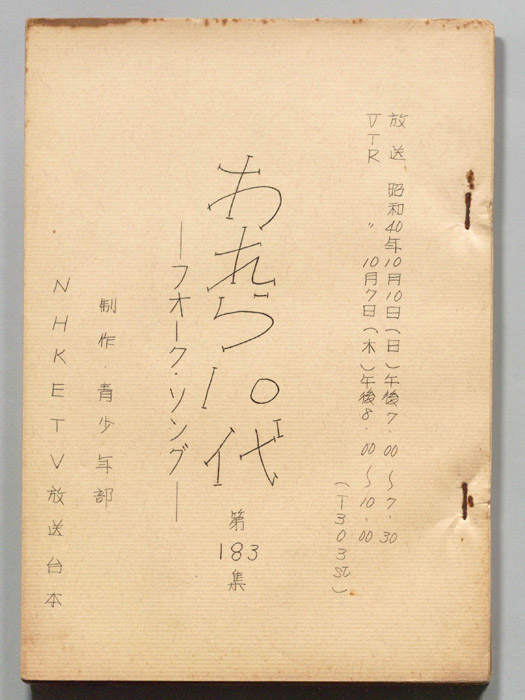 放送 昭和40年10月10日(日)午後7.00～7.30
VTR 〃 10月7日(木)午後8.00～10.00
(T303St)
われら10代
第183集
―フオーク・ソング―
制作・青少年部
NHKETV放送台本